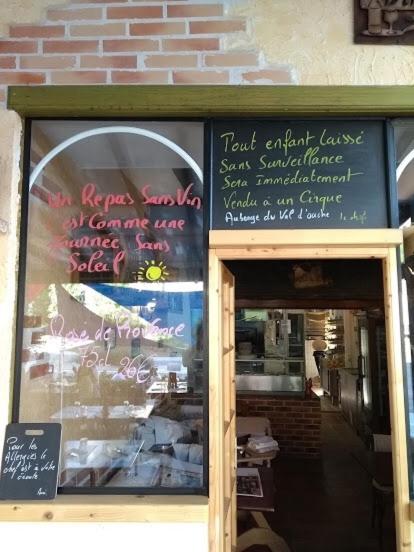 Un Repas Sans Vin
est Comme une
Journée Sans
Soleil
Rose de Provence
75cl 26€
Tout enfant Laissé
Sans Surveillance
Sera Immédiatement
Vendu à un Cirque
Auberge du Val d'ouche le chef
Pour les
Allergies le
chef est à votre
écoute